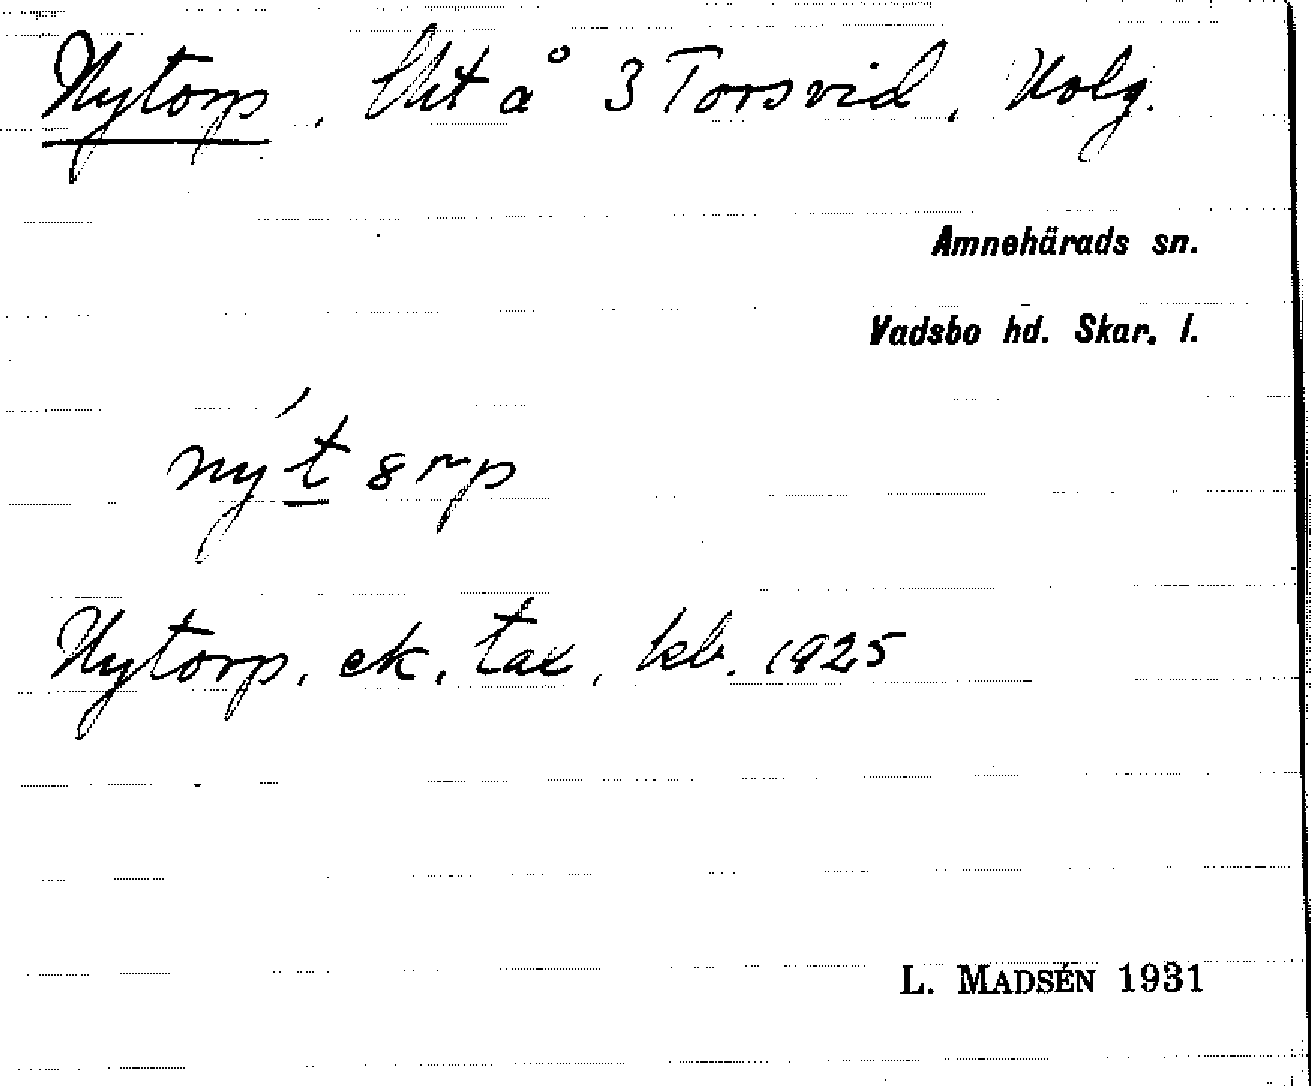 Nytorp, lht å 3 Torsvid, Holg.
Amnehärads sn.
Vadsbo hd. Skar. l.
Nytorp, ek, tax, kb. 1925
L. MADSÉN 1931